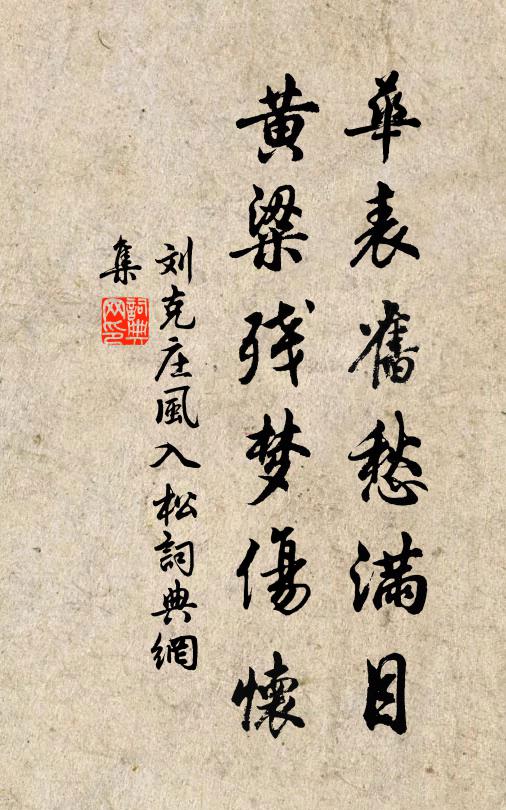 華表舊愁滿目
黄粱残梦傷懷
刘克庄風入松詞典網
集
詞典网印